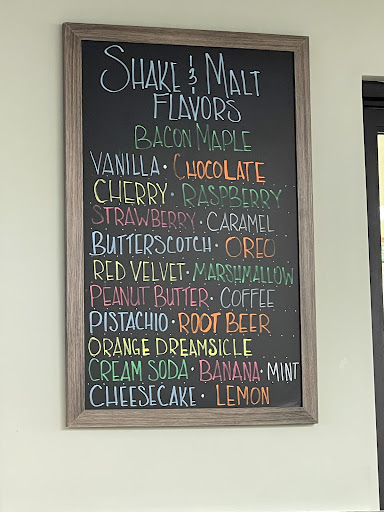 SHAKE & MALT
FLAVORS
BACON MAPLE
VANILLA · CHOCOLATE
CHERRY · RASPBERRY
STRAWBERRY · CARAMEL
BUTTERSCOTCH · OREO
RED VELVET · MARSHMALLOW
PEANUT BUTTER · COFFEE
PISTACHIO · ROOT BEER
ORANGE DREAMSICLE
CREAM SODA · BANANA · MINT
CHEESECAKE · LEMON